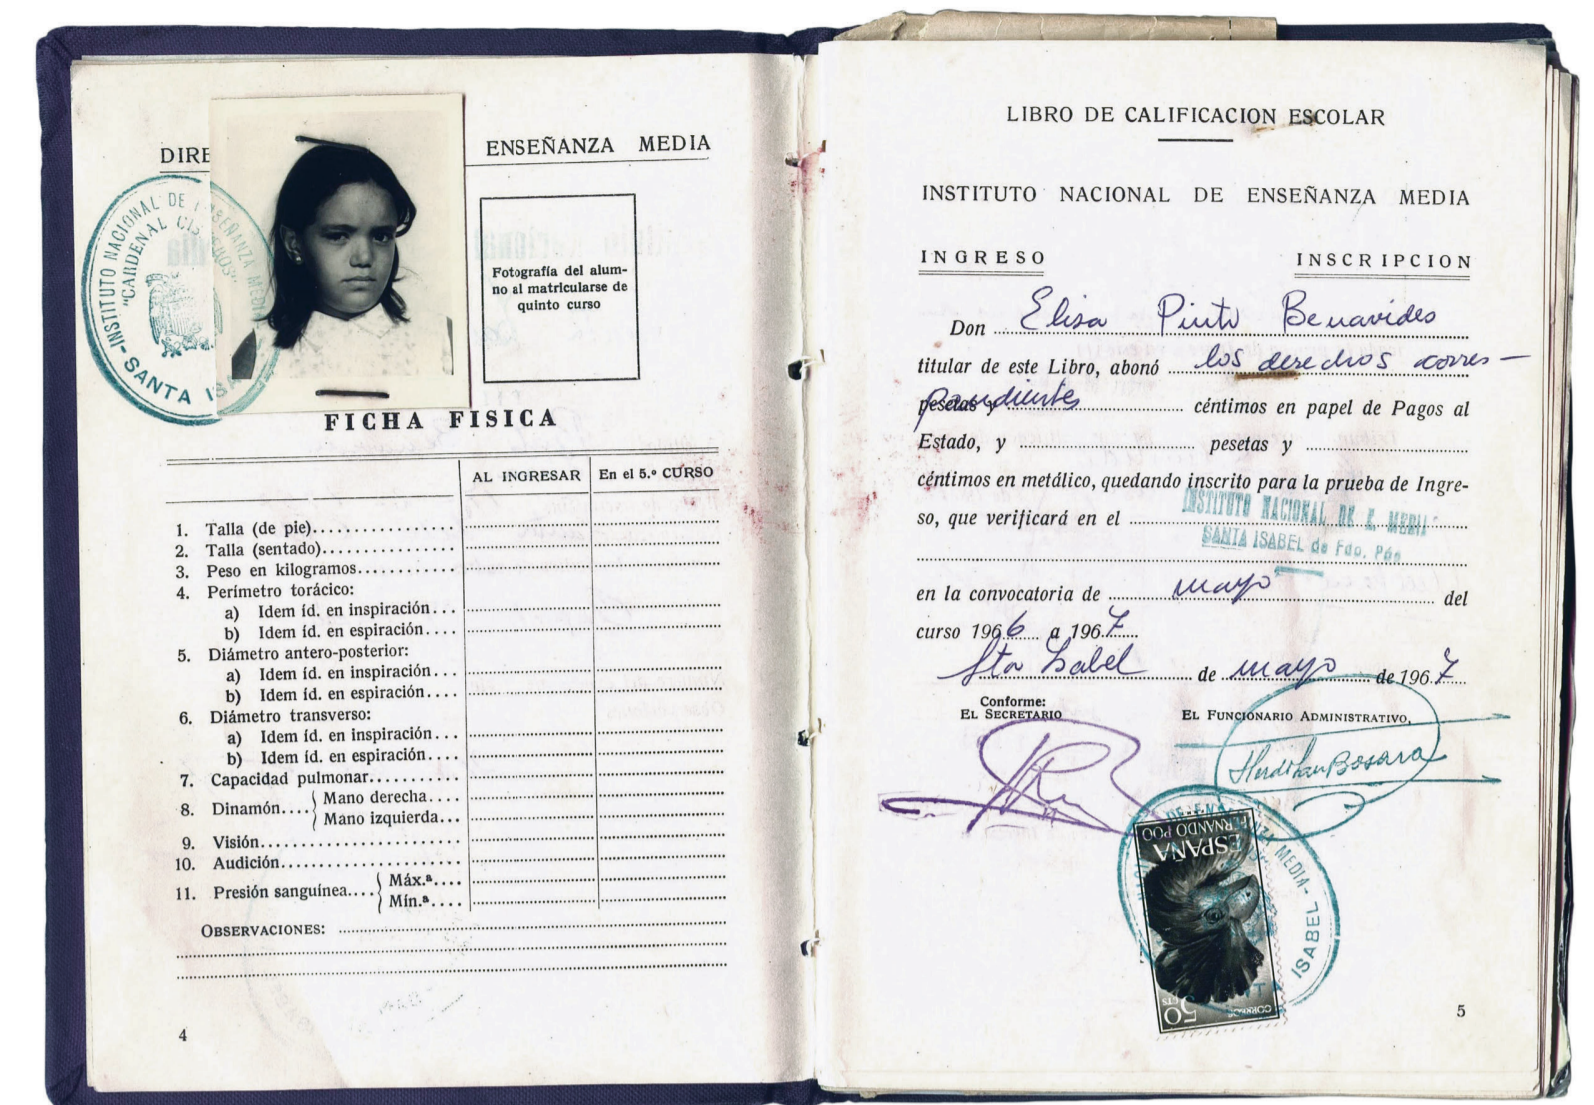 DIRE ENSEÑANZA MEDIA
INSTITUTO NACIONAL DE ENSEÑANZA MEDIA
"CARDENAL CISNEROS"
SANTA ISA
Fotografía del alum-
no al matricularse de
quinto curso
FICHA FISICA
AL INGRESAR En el 5.º CURSO
1. Talla (de pie)
2. Talla (sentado)
3. Peso en kilogramos
4. Perímetro torácico:
a) Idem íd. en inspiración
b) Idem íd. en espiración
5. Diámetro antero-posterior:
a) Idem íd. en inspiración
b) Idem íd. en espiración
6. Diámetro transverso:
a) Idem íd. en inspiración
b) Idem íd. en espiración
7. Capacidad pulmonar
8. Dinamón Mano derecha
Mano izquierda
9. Visión
10. Audición
11. Presión sanguínea Máx.ª
Mín.ª
OBSERVACIONES:
4
LIBRO DE CALIFICACION ESCOLAR
INSTITUTO NACIONAL DE ENSEÑANZA MEDIA
INGRESO INSCRIPCION
Don Elisa Pinto Benavides
titular de este Libro, abonó los derechos corres-
pesetas y pondientes céntimos en papel de Pagos al
Estado, y pesetas y
céntimos en metálico, quedando inscrito para la prueba de Ingre-
so, que verificará en el INSTITUTO NACIONAL DE E. MEDIA
SANTA ISABEL de Fdo. Póo
en la convocatoria de mayo del
curso 1966 a 1967
Sta Isabel de mayo de 1967
Conforme:
EL SECRETARIO EL FUNCIONARIO ADMINISTRATIVO,
FERNANDO POO
ESPAÑA
50 CTS
CORREOS
DE EN ZA MEDIA-
ISABEL
5